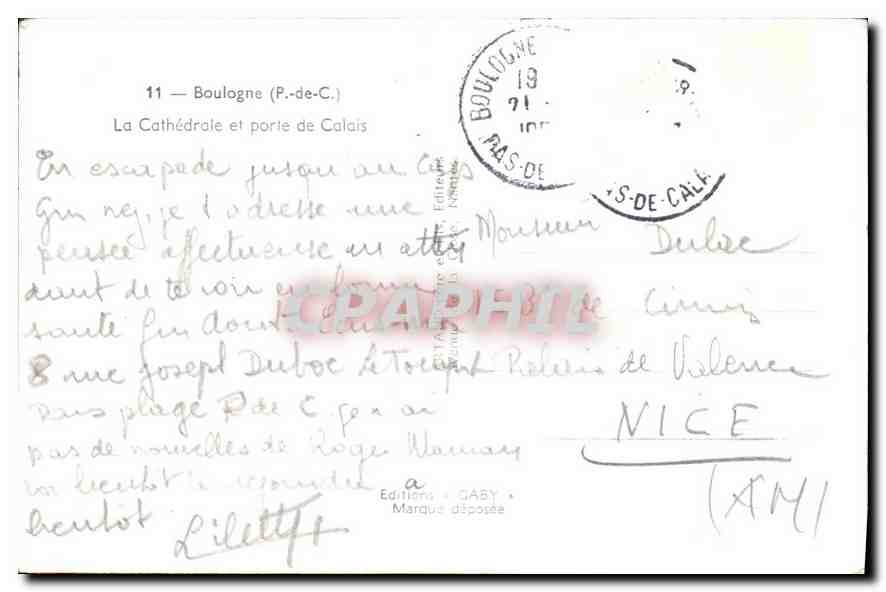 11 — Boulogne (P.-de-C.)
La Cathédrale et porte de Calais
BOULOGNE
19
21
PAS-DE
S-DE-CALA
En escapade jusqu'au Cap
Gris nez, je t'adresse une
pensée affectueuse en atten
dant de te voir en bonne
santé
8 rue Joseph Duboc Le Touquet
Paris plage P de C. Je n ai
pas de nouvelles de Roger Maman
va bientôt le rejoindre a
bientôt
Lilette
Monsieur Duboc
Bd de Cimiez
Palais de Valence
NICE
(AM)
Nantes
Editeurs
CPAPHIL
Editions « GABY »
Marque déposée